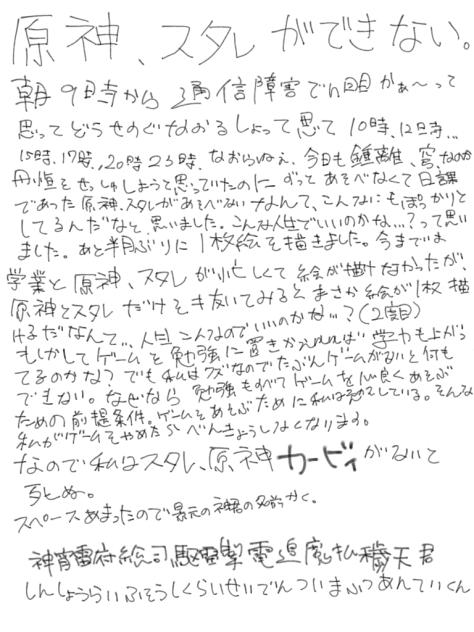 原神、スタレができない。
朝9時から通信障害でn回目かぁ〜って
思ってどうせのぐなおるしょって思て10時、12時…
15時、17時、20時23時、なおらねぇ、今日も鍾離、穹、なのか
丹恒をせっしゅしようて思っていたのに ずっとあそべなくて日課
であった原神、スタレがあそべないなんて、こんなにもぽっかりと
してるんだなと思いました。こんな人生でいいのかな…?って思い
ました。あと半月ぶりに1枚絵を描きました。今までは
学業と原神、スタレが忙しくて絵が描けなかったが
原神とスタレだけそ抜いてみるとまさか絵が1枚描
けるだなんて… 人生こんなのでいいのかな…?(2度目)
もしかしてゲームを勉強に置きかえれば学力も上がっ
てるのかな?でも私はクズなのでたぶんゲームがないと何も
できない。なぜなら勉強もすべてゲームを心良くあそぶ
ための前提条件。ゲームをあそぶために私は努力している。そんな
私がゲームをやめたらべんきょうしなくなります。
なので私はスタレ、原神カービィがないと
死ぬ。
スペースあまったので最元の神君の名前かく。
神霄雷府総司駆雷掣電追魔払穢天君
しんしょうらいふそうしくらいせいでんついまふつあんていくん